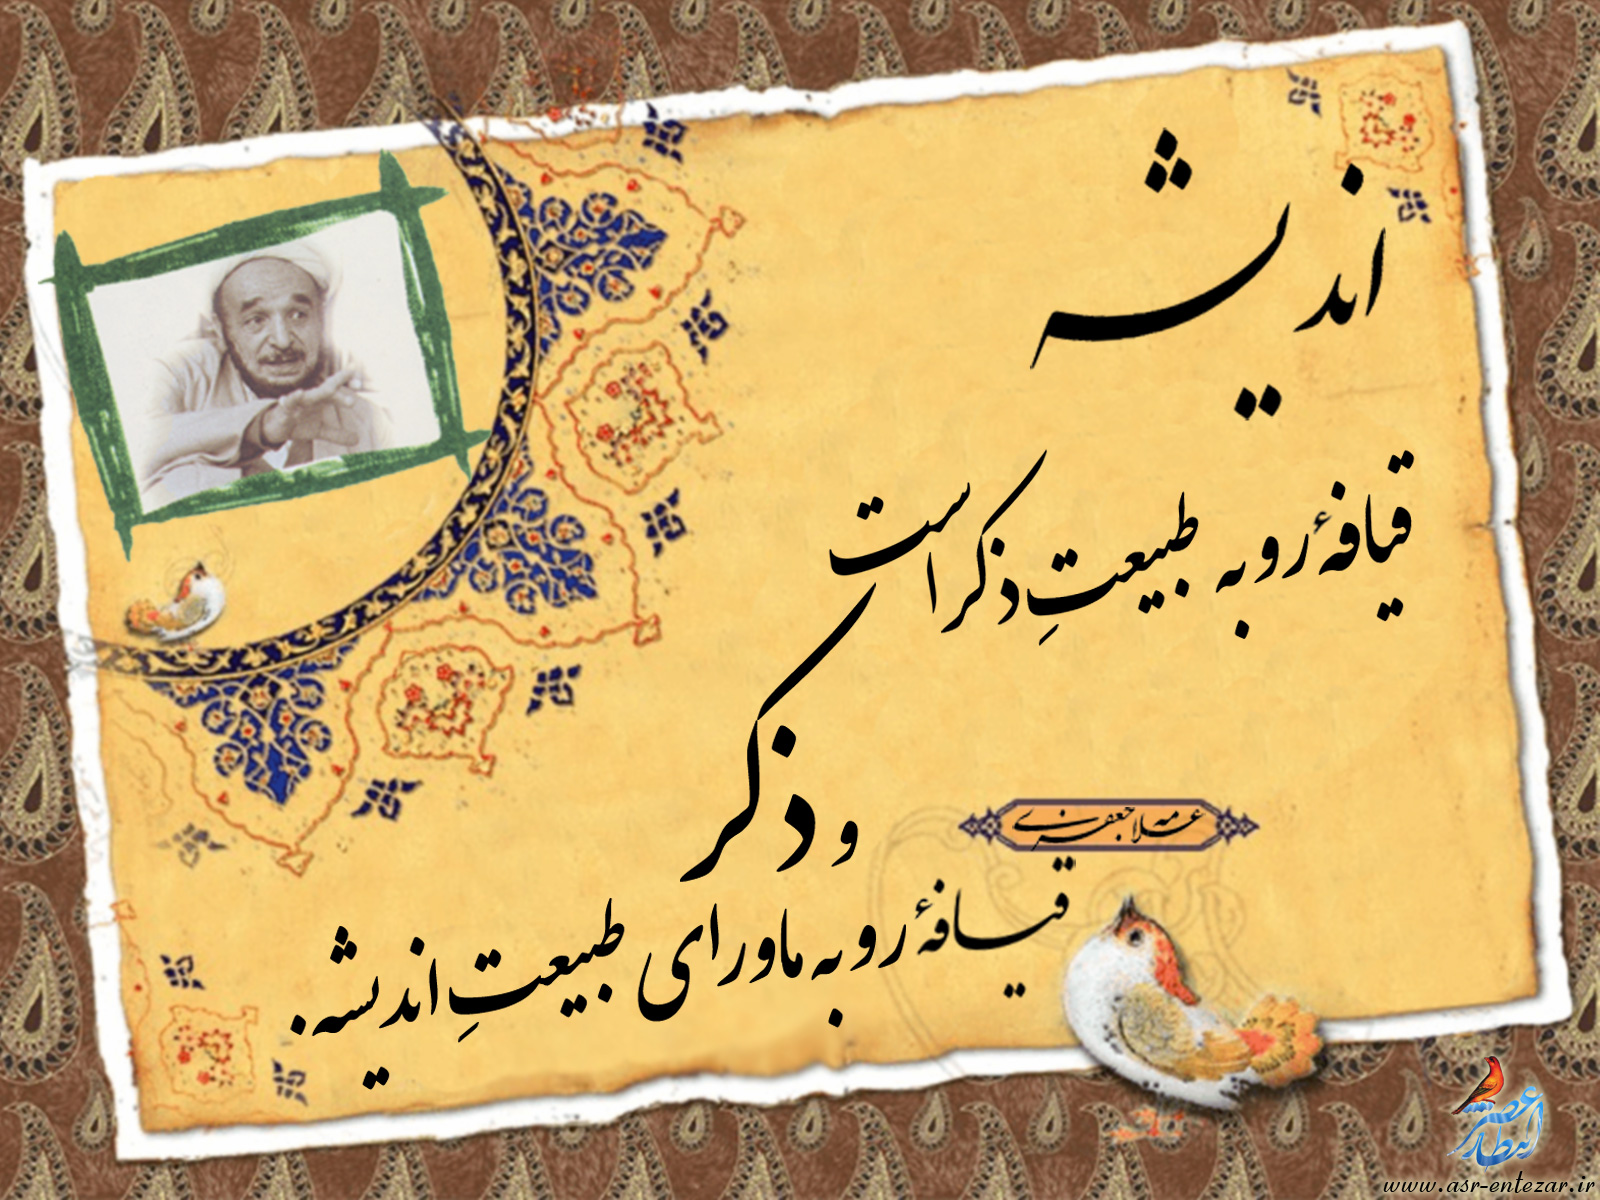 اندیشه
قیافهٔ رو به طبیعتِ ذکر است
و ذکر
علامه جعفری
قیافهٔ رو به ماورای طبیعتِ اندیشه.
عصر انتظار
www.asr-entezar.ir